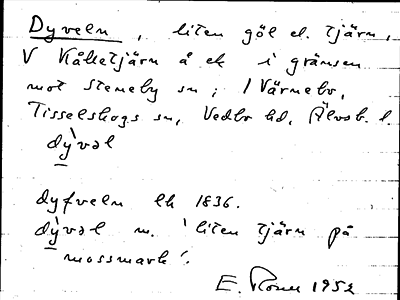 Dyveln, liten göl el. tjärn,
V Kålletjärn å ek i gränsen
mot Steneby sn; i Värnebo,
Tisselskogs sn, Vedbo hd, Älvsb. l.
dỳvəl
dyfveln lk 1836.
dỳvəl m. 'liten tjärn på
mossmark'.
E. 1952